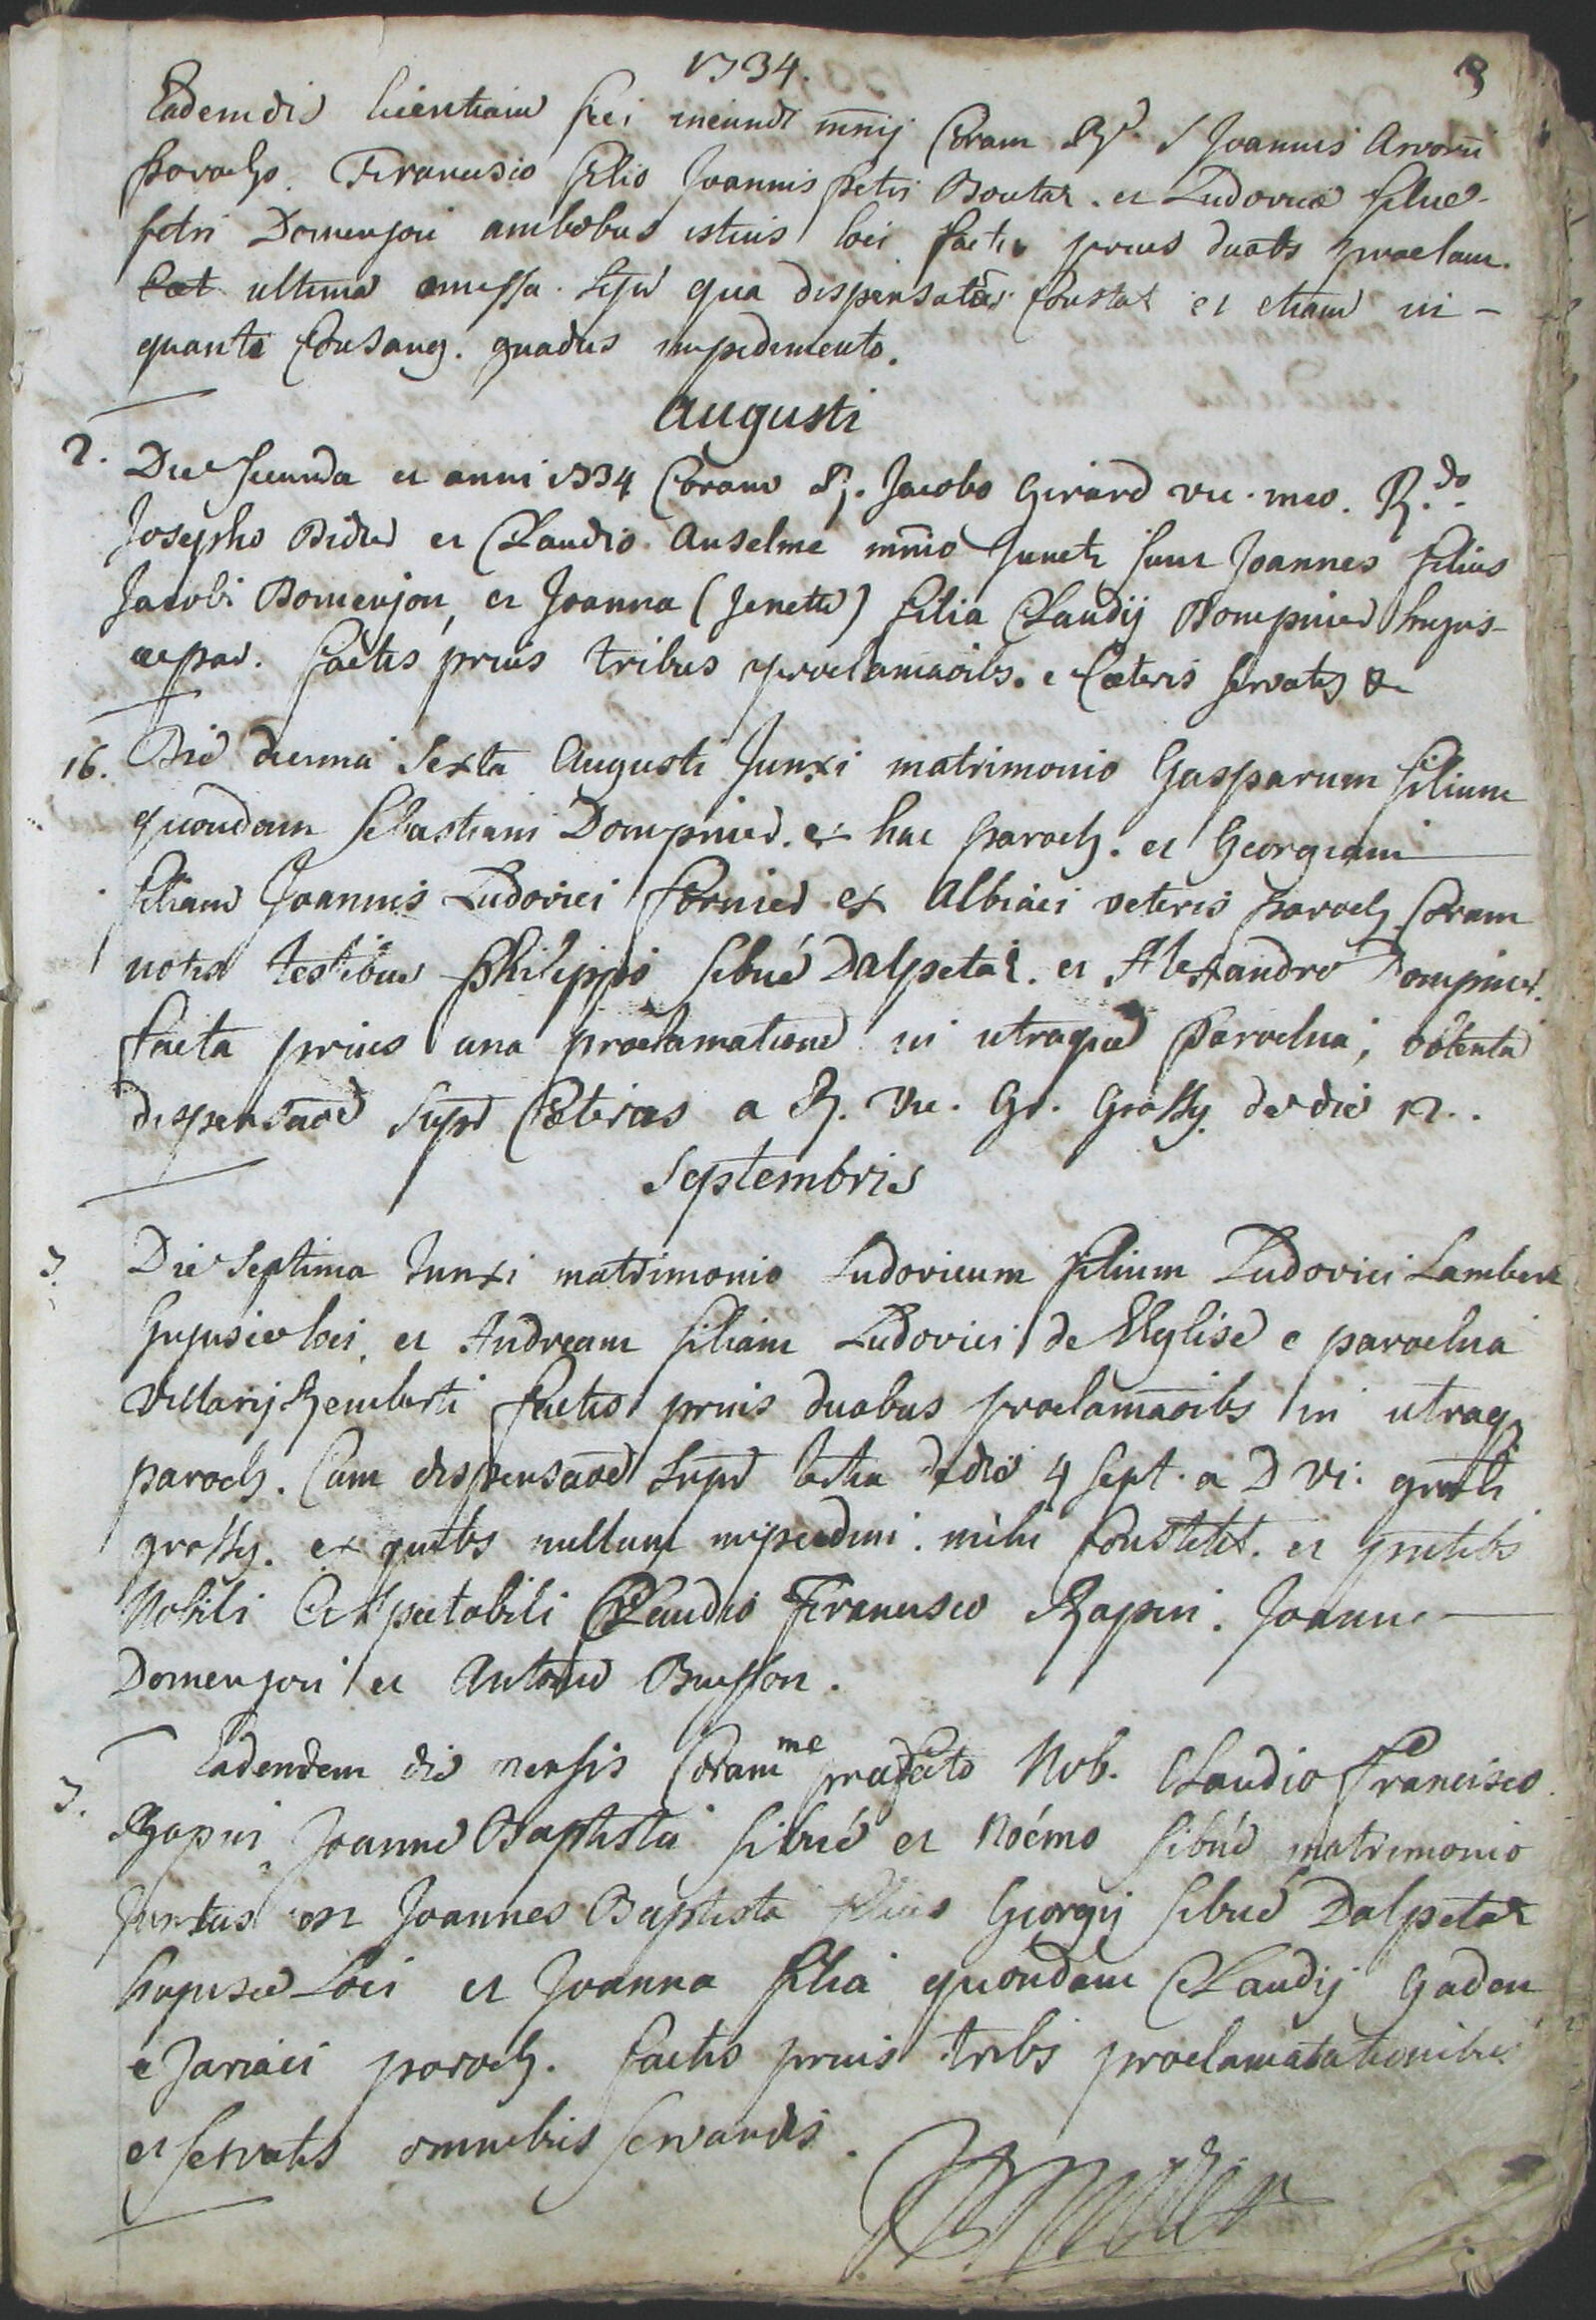 1734.
3
Eadem die licentiam feci ineundi mnij Coram Rd. S Joannis Arvorii
Paroch. Francisco filio Joannis petri Boutaz. et Ludovica filia
petri Domenjon ambobus istius loci factis prius duabs proclam.
ultima omissa. Supr qua dispensatõe Constat et etiam in -
quarto Consang. gradus impedimento.
Augusti
2. Die Secunda et anni 1734 Coram R. Jacobo Girard vic. meo. R.do
Josepho Didier et Claudio Anselme mnio Juncti sunt Joannes filius
Jacobi Domenjon, et Joanna (Jenette) filia Claudij Dompnier hujus-
ce par. factis prius tribus proclamaõibs. e Cæteris servatis &
16. Die decima Sexta Augusti Junxi matrimonio Gasparum filium
quondam Sebastiani Dompnier. ex hac paroch. et Georgiam
filiam Joannis Ludovici Fornier ex Albiaci veteris paroch Coram
notis testibus Philippo Sibué Dalpetaz. et Alexandro Dompnier.
facta prius una proclamatione in utraque Parochia, obtenta
dispensaõe Supr Cæteras a R. Vic. G. Grassy. de die 12..
Septembris
7. Die Septima Junxi matrimonio Ludovicum filium Ludovici Lambert
hujusce loci, et Andream filiam Ludovici de l'Eglise e parochia
Villarij Gemberti factis prius duabus proclamaõibs in utraq
paroch. Cum dispensaõe Supr tertia de die 4 Sept. a D Vi. grali
grassy. ex quibs nullum impedimi. mihi Constitit. et pntibs
Nobili et Spectabili Claudio Francisco Rapin. Joanne
Domenjon et Antonio Buisson.
7. Eademdem die mensis Coram me præfato Nob. Claudio Francisco
Rapin, Joanne Baptista Sibué et Noémo Sibué matrimonio
Junctus est Joannes Baptista filius Georgij Sibué Dalpetaz
hujusce Loci et Joanna filia quondam Claudij Gaden
e Jariaci paroch. factis prius tribs proclamatationibus
et servatis omnibus servandis.